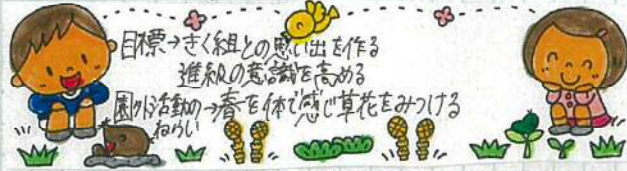 目標→きく組との思い出を作る
進級の意識を高める
園外活動の→春を体で感じ草花をみつける
ねらい